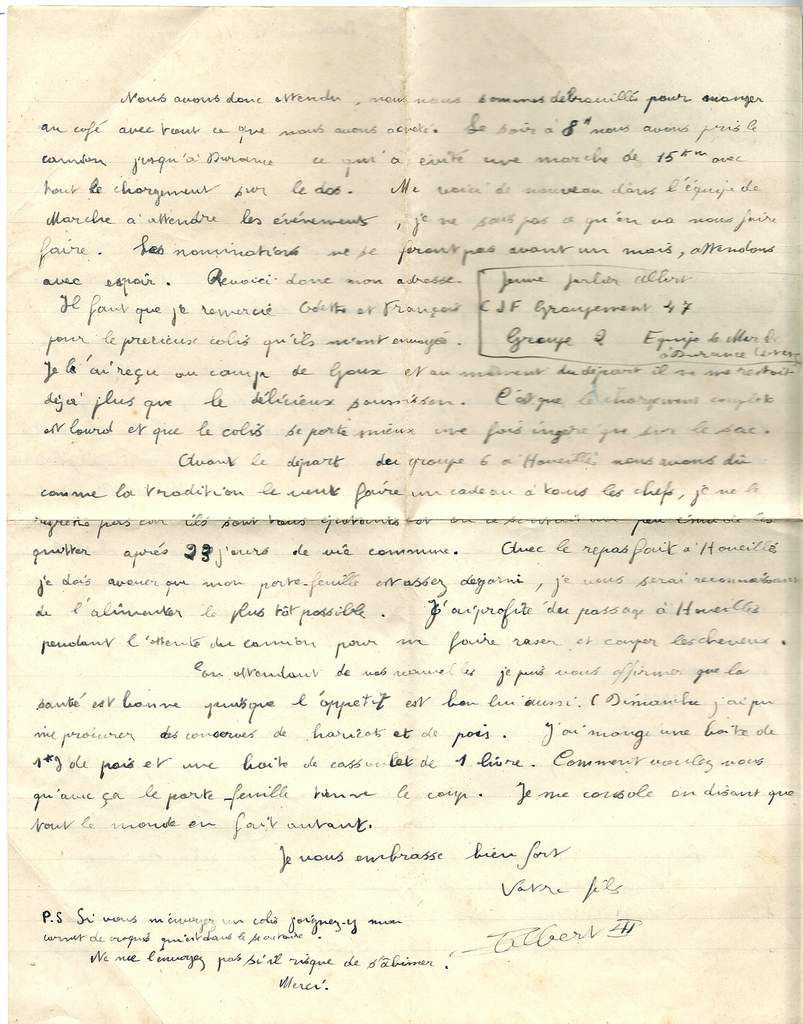 Nous avons donc attendu, nous nous sommes debrouillés pour manger
au café avec tout ce que nous avons acheté. Le soir à 8h nous avons pris le
camion jusqu'à Durance ce qui a évité une marche de 15km avec
tout le chargement sur le dos. Me voici de nouveau dans l'équipe de
Marche a attendre les événements, je ne sais pas ce qu'on va nous faire
faire. Les nominations ne se feront pas avant un mois, attendons
avec espoir. Revoici donc mon adresse.
Jeune Albert
CJF Groupement 47
Groupe 2 Equipe de
à Durance
Il faut que je remercie Odette et François
pour le precieux colis qu'ils m'ont envoyé.
Je l'ai reçu au camp de Goux et au moment du départ il ne me restait
déjà plus que le délicieux saucisson. C'est que le chargement complet
est lourd et que le colis se porte mieux une fois ingéré que sur le sac.
Avant le départ du groupe 6 a Houeillès nous avons dû
comme la tradition le veut faire un cadeau à tous les chefs, je ne le
regrette pas car ils sont tous épatants et on se sentait un peu ému de les
quitter après 23 jours de vie commune. Avec le repas fait a Houeillès
je dois avouer que mon porte-feuille est assez degarni, je vous serai reconnaissant
de l'alimenter le plus tôt possible. J'ai profité du passage à Houeillès
pendant l'attente du camion pour me faire raser et couper les cheveux.
En attendant de vos nouvelles je puis vous affirmer que la
santé est bonne puisque l'appétit est bon lui aussi. (Dimanche j'ai pu
me procurer des conserves de haricots et de pois. J'ai mangé une boîte de
de pois et une boite de cassoulet de 1 livre. Comment voulez vous
qu'avec ça le porte-feuille tienne le coup. Je me console en disant que
tout le monde en fait autant.
Je vous embrasse bien fort
Votre fils
Albert III
P.S Si vous m'envoyez un colis joignez-y mon
carnet de croquis qu'est dans le
Ne me l'envoyez pas si il risque de s'abimer.
Merci.